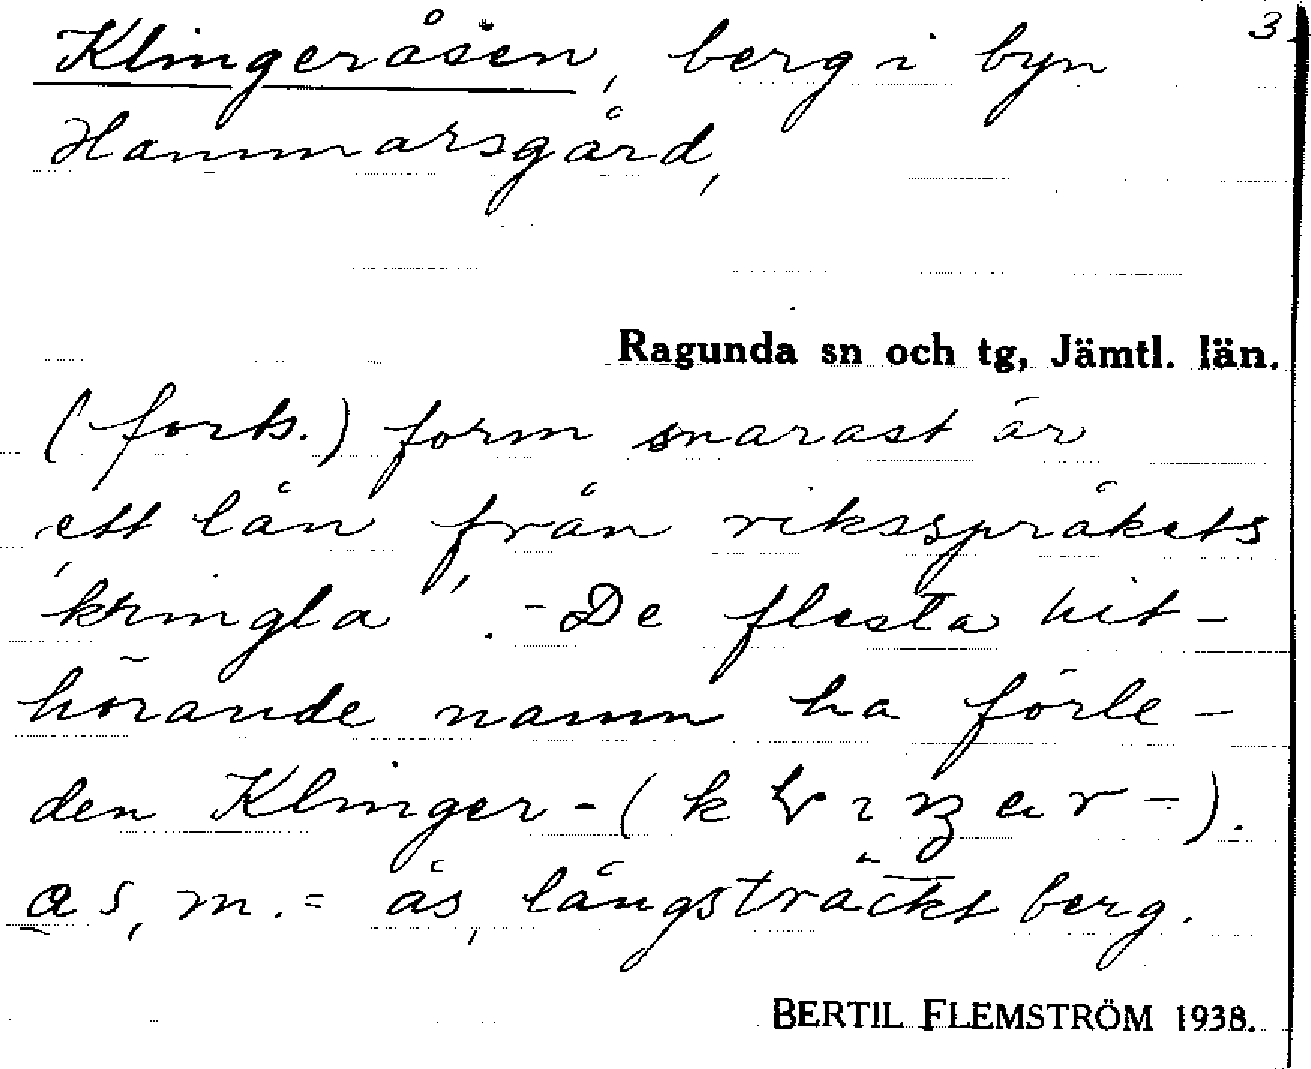 3
Klingeråsen, berg i byn
Hammarsgård,
Ragunda sn och tg, Jämtl. län.
(forts.) form snarast är
ett lån från riksspråkets
'kringla'. - De flesta hit-
hörande namn ha förle-
den Klinger-
as, m. = ås, långsträckt berg.
BERTIL FLEMSTRÖM 1938.